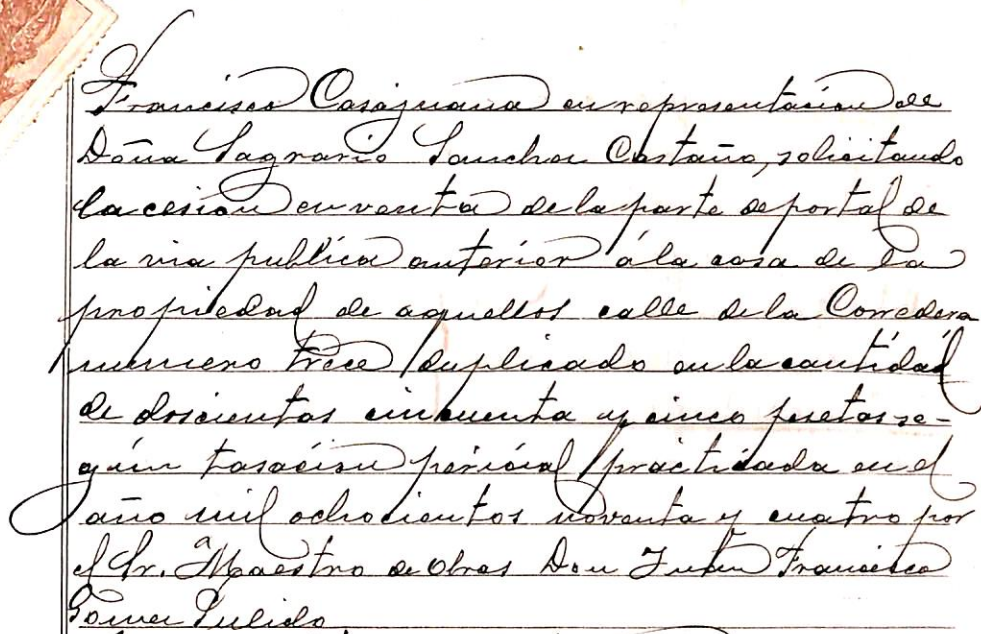 Francisco Casajuana en representacion de
Doña Sagrario Sanchez Castaño, solicitando
la cesion en venta de la parte de portal de
la via publica anterior á la casa de la
propiedad de aquellos calle de la Corredera
numero trece duplicado en la cantidad
de doscientas cincuenta y cinco pesetas se-
gún tasación pericial practicada en el
año mil ochocientos noventa y cuatro por
el Sr. Maestro de Obras Don Francisco
Gomez Pulido